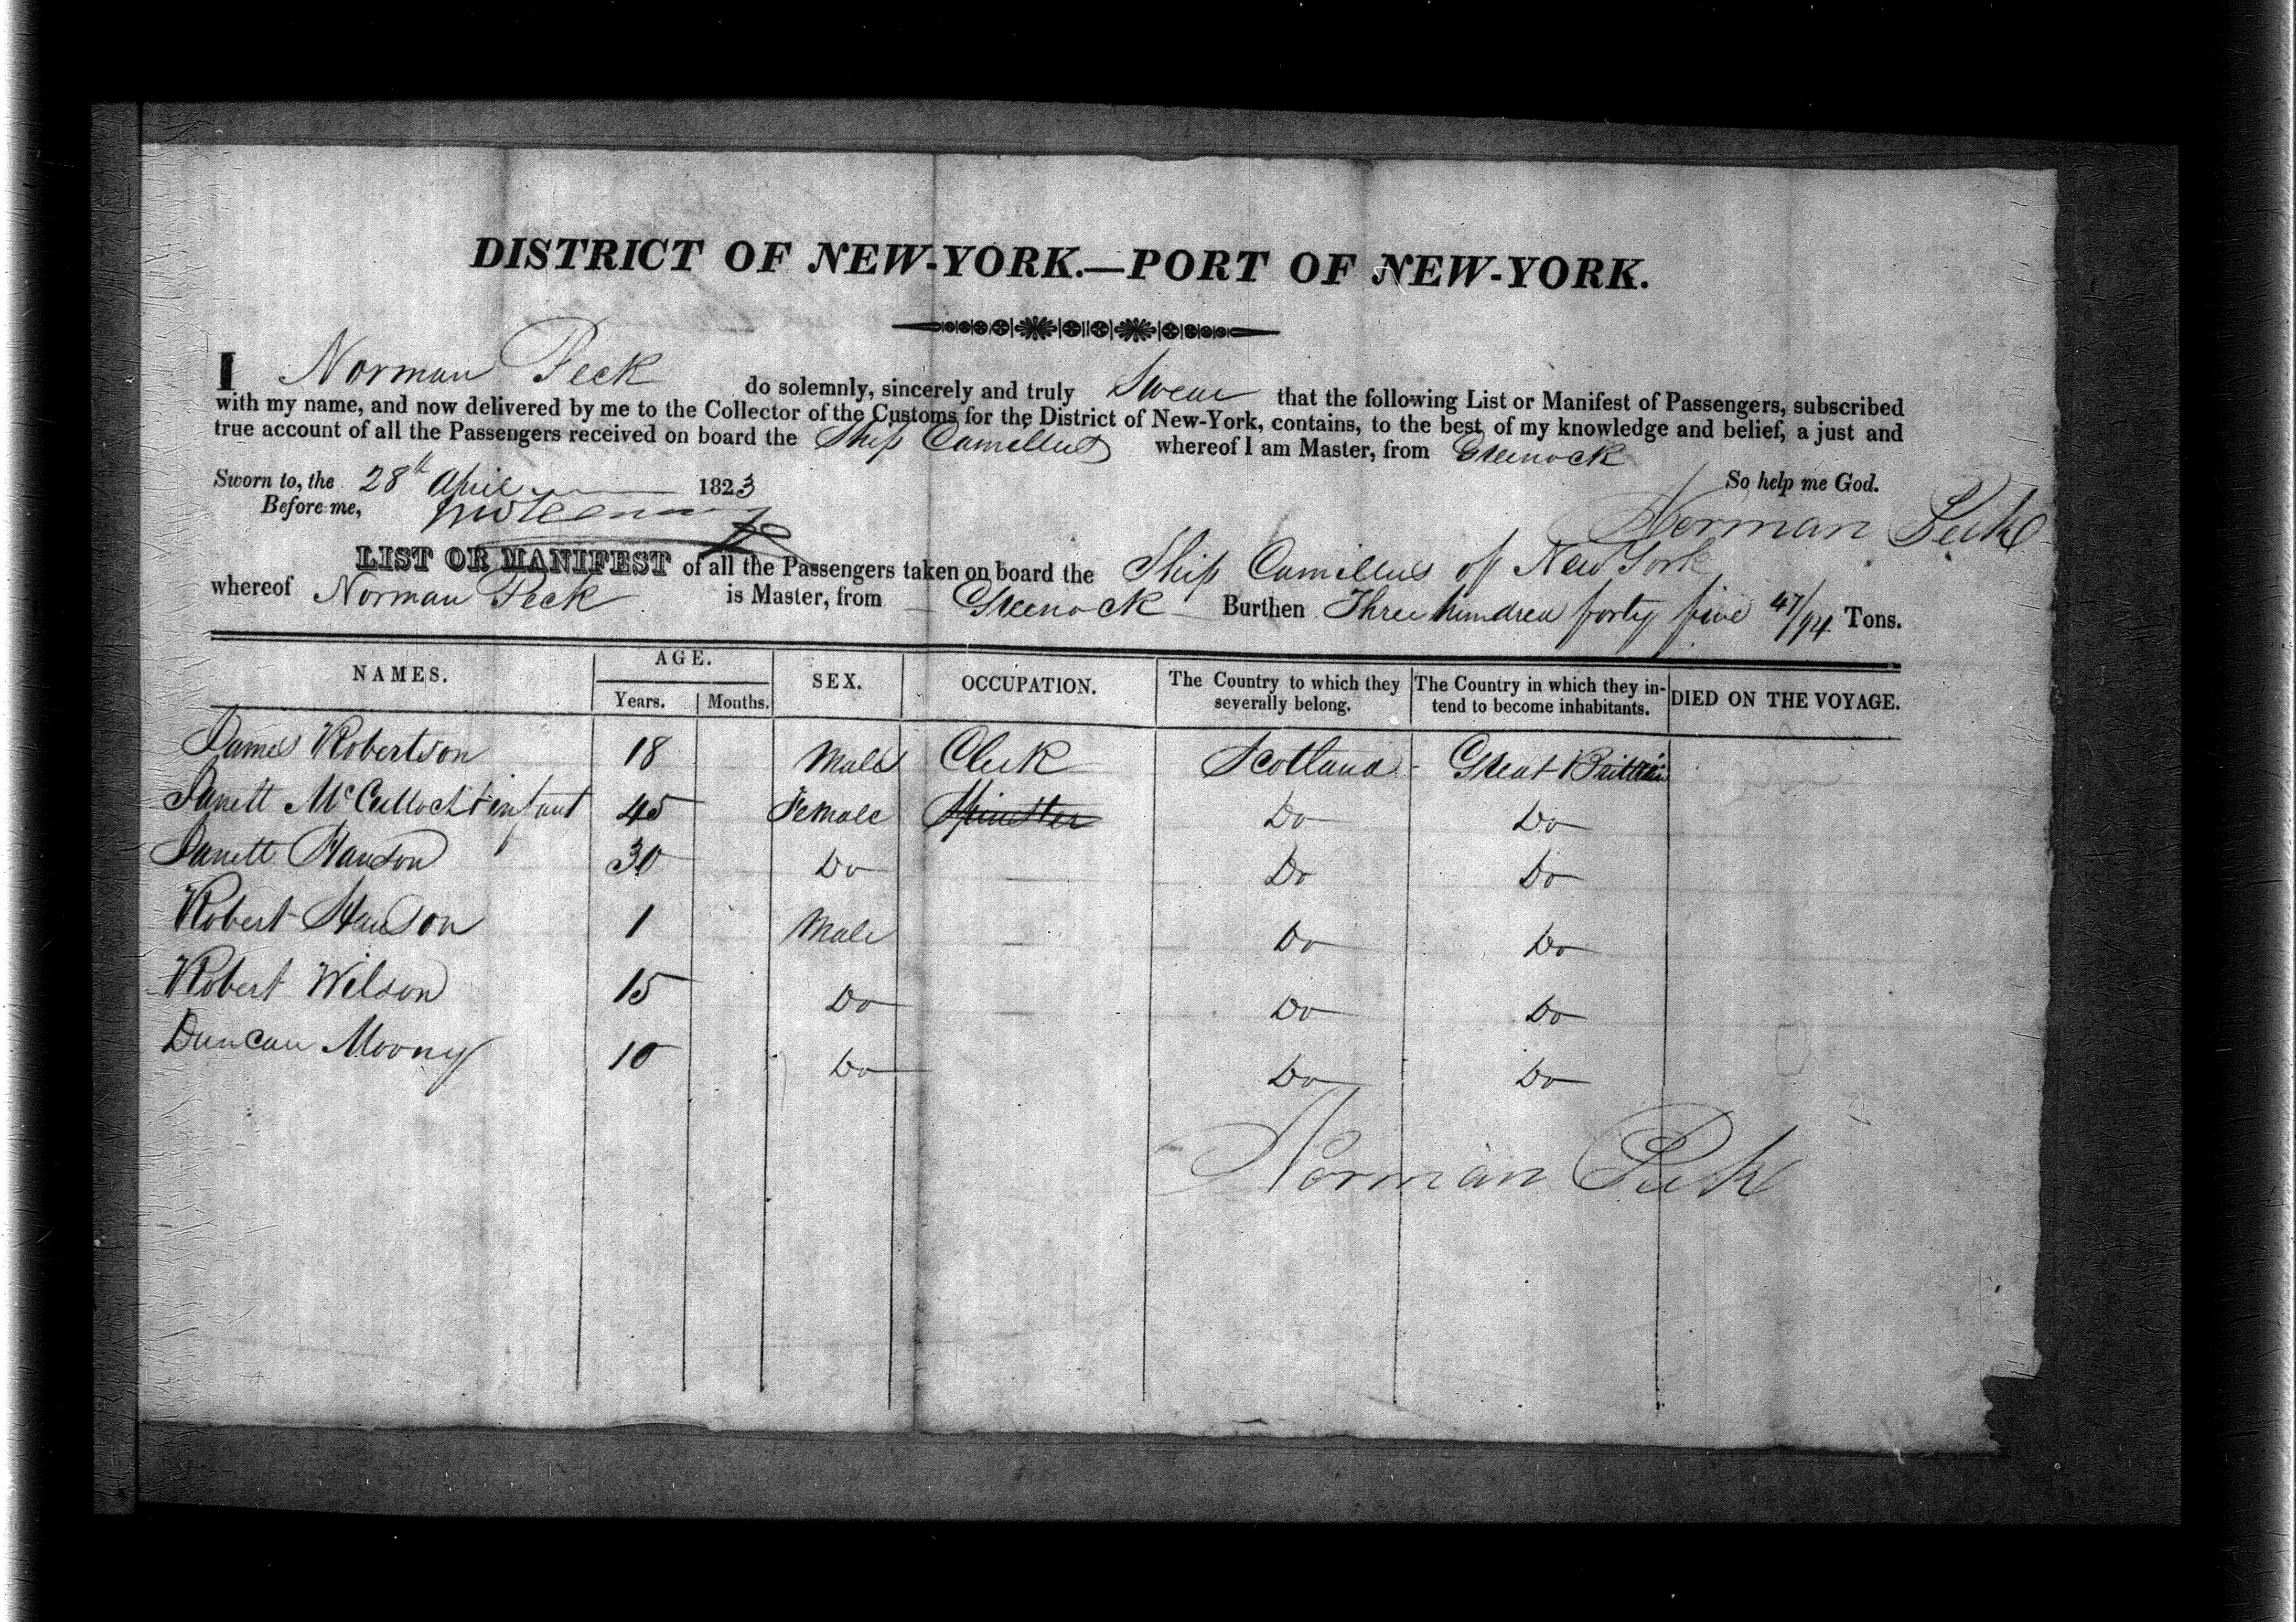 DISTRICT OF NEW-YORK.—PORT OF NEW-YORK.
I Norman Peck do solemnly, sincerely and truly Swear that the following List or Manifest of Passengers, subscribed
with my name, and now delivered by me to the Collector of the Customs for the District of New-York, contains, to the best of my knowledge and belief, a just and
true account of all the Passengers received on board the Ship Camillus whereof I am Master, from Greenock
So help me God.
Sworn to, the 28th April 1823
Before me,
Norman Peck
LIST OR MANIFEST of all the Passengers taken on board the Ship Camillus of New York
whereof Norman Peck is Master, from Greenock Burthen Three hundred forty five 47/94 Tons.
NAMES. AGE. Years. Months. SEX. OCCUPATION. The Country to which they severally belong. The Country in which they intend to become inhabitants. DIED ON THE VOYAGE.
James Robertson 18 Male Clerk Scotland Great Brittain
Janett McCulloch & infant 45 Female Spinster Do Do
Janett 30 Do Do Do
Robert 1 Male Do Do
Robert Wilson 15 Do Do Do
Duncan Moony 10 Do Do Do
Norman Peck